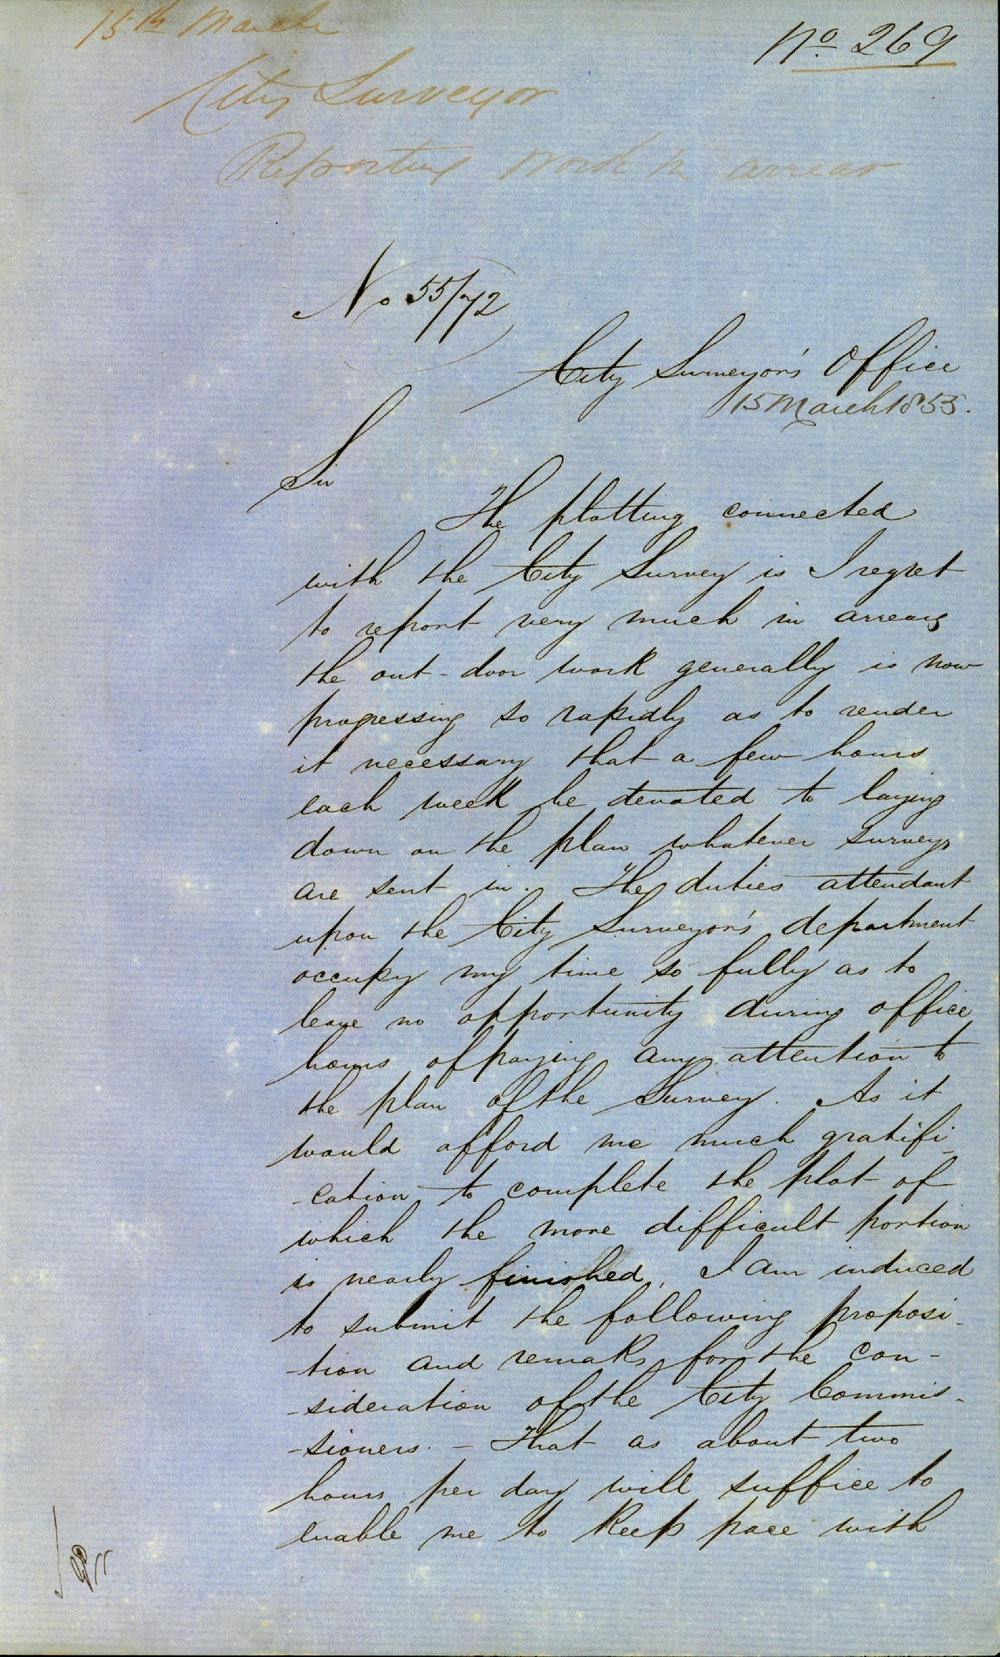 15th March
No 269
City Surveyor
Reporting work in arrear
No 55/72
City Surveyor's Office
15 March 1855.
Sir
The plotting connected
with the City Survey is I regret
to report very much in arrears
the out-door work generally is now
progressing so rapidly as to render
it necessary that a few hours
each week be devoted to laying
down on the plan whatever surveys
are sent in. The duties attendant
upon the City Surveyor's department
occupy my time so fully as to
leave no opportunity during office
hours of paying any attention to
the plan of the Survey. As it
would afford me much gratifi-
-cation to complete the plot of
which the more difficult portion
is nearly finished, I am induced
to submit the following proposi-
-tion and remarks for the con-
-sideration of the City Commis-
-sioners. - That as about two
hours per day will suffice to
enable me to keep pace with